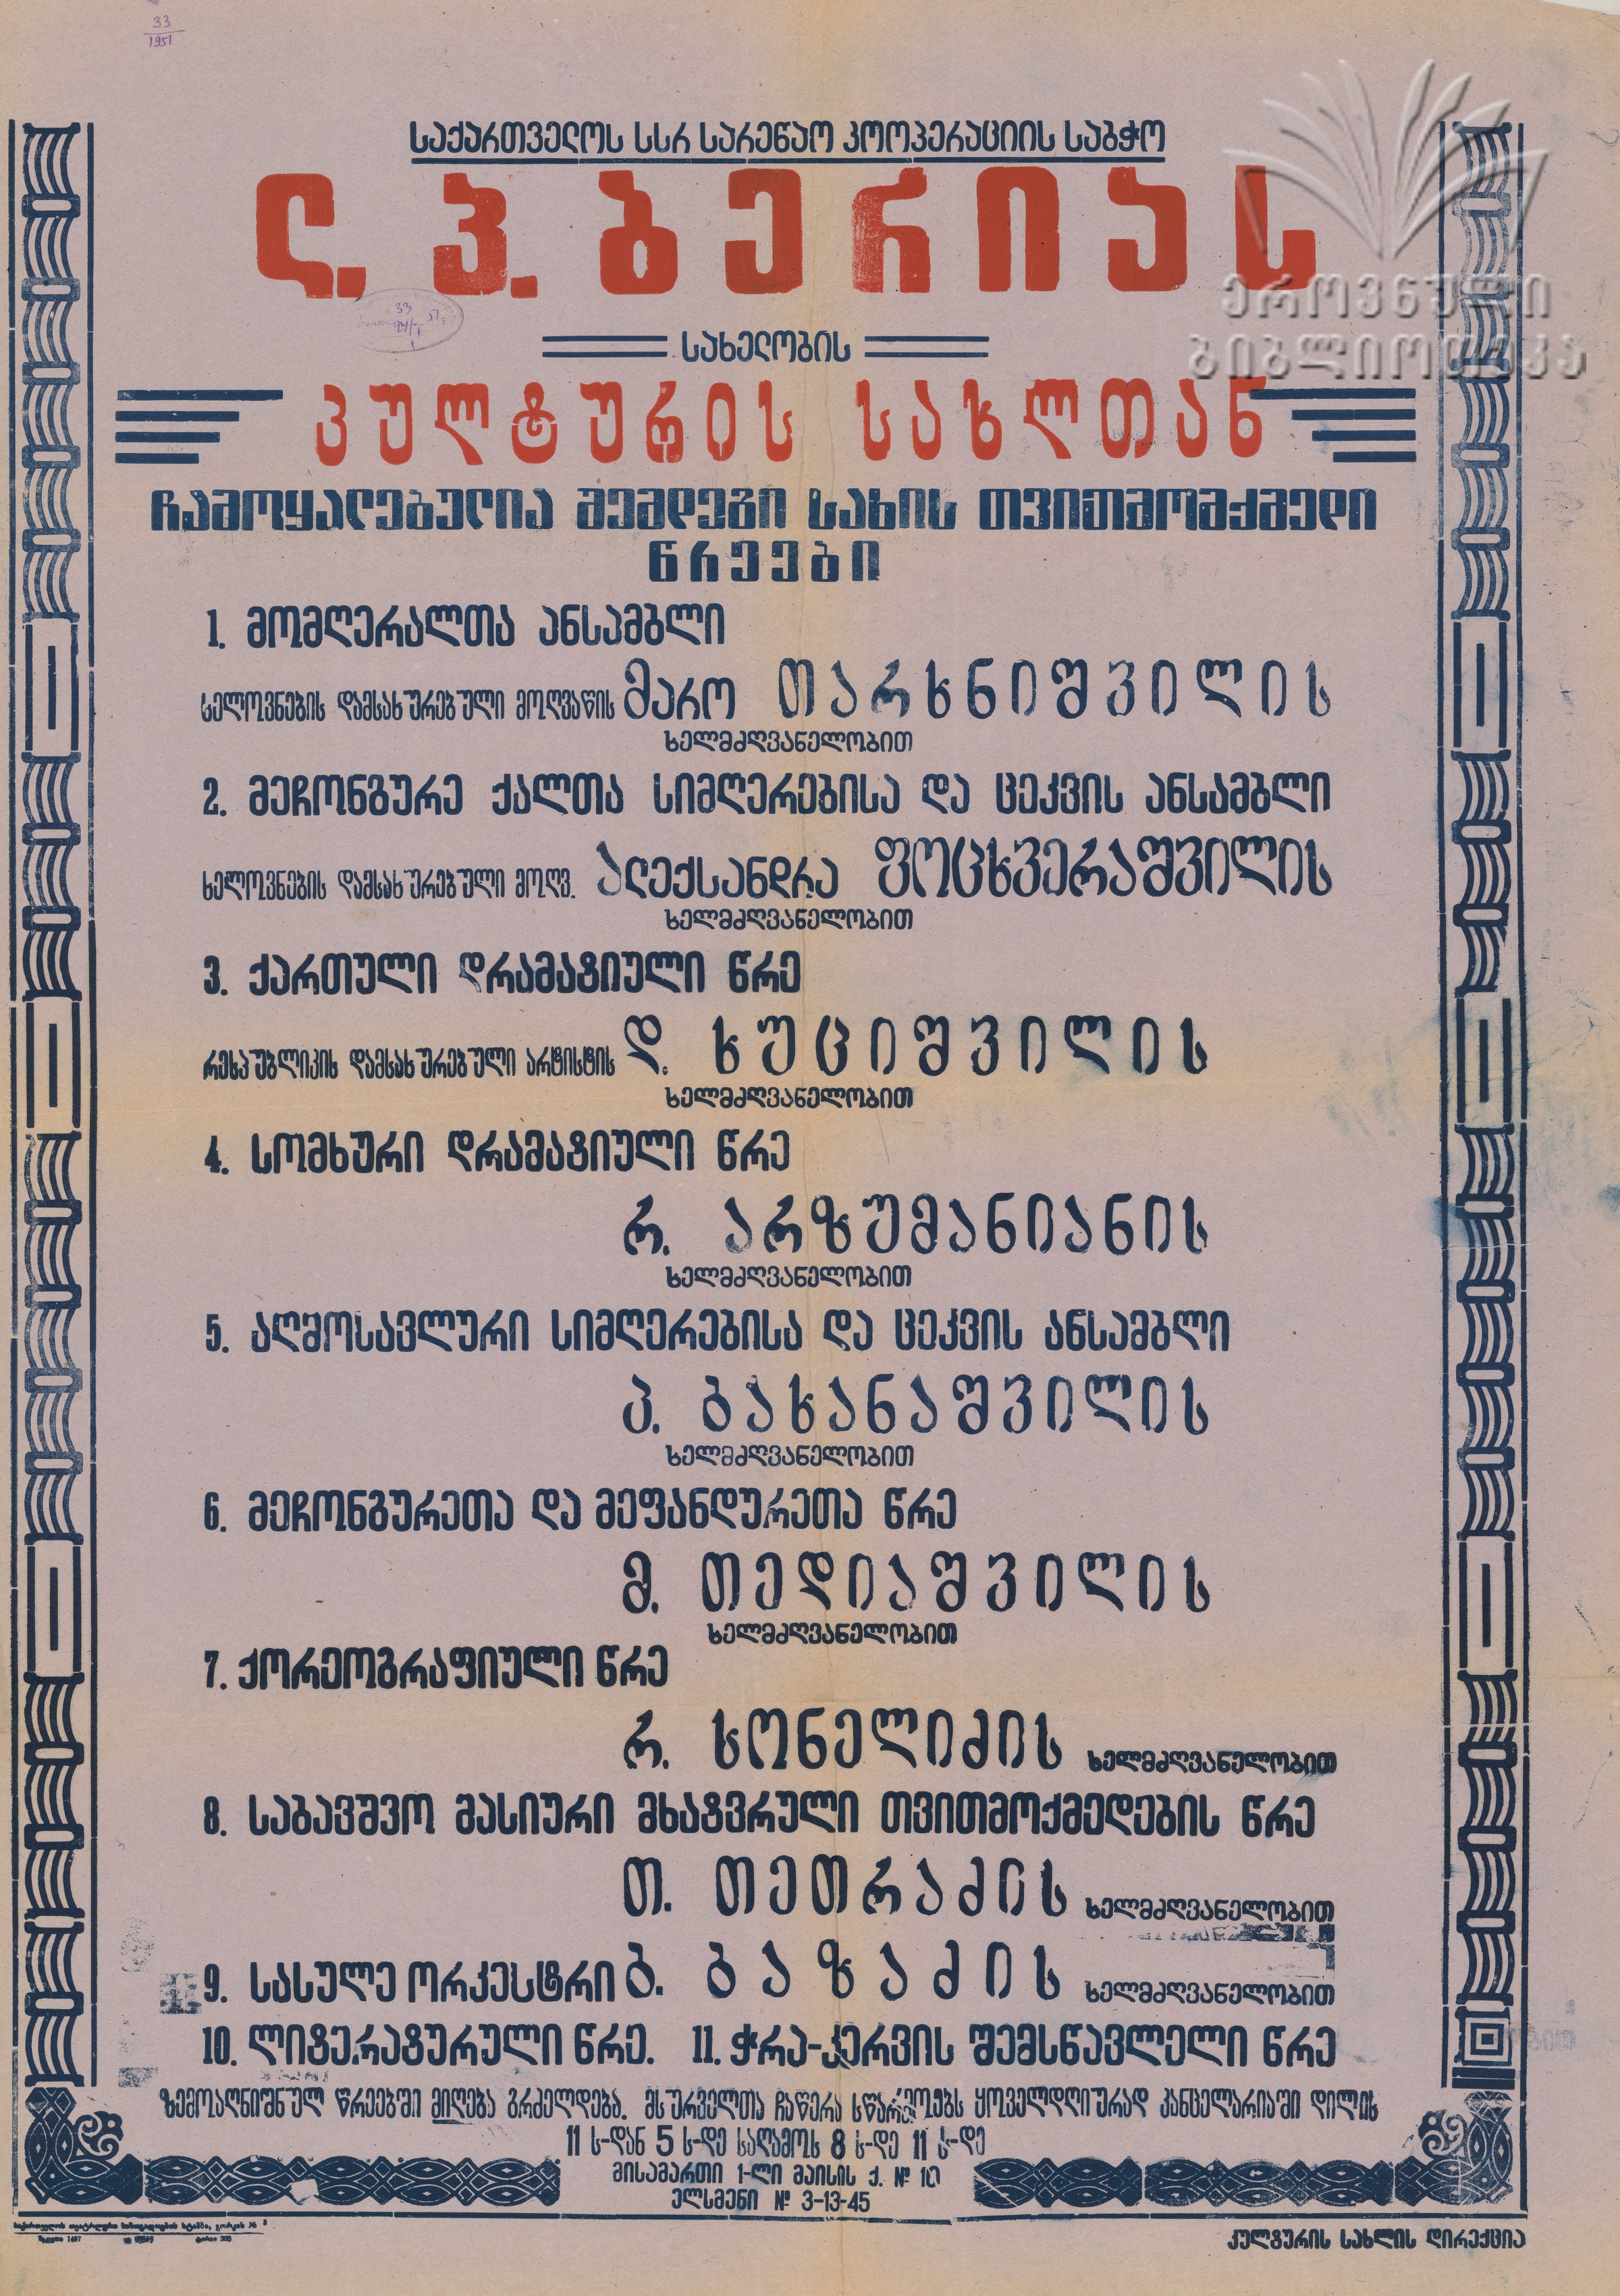 33
1951
საქართველოს სსრ სარეწაო კოოპერაციის საბჭო
ლ. პ. ბერიას
ეროვნული
ბიბლიოთეკა
სახელობის
კულტურის სახლთან
ჩამოყალებულია შემდეგი სახის თვითმომქმედი
წრეები
1. მომღერალთა ანსამბლი
ხელოვნების დამსახურებული მოღვაწის მარო თარხნიშვილის
ხელმძღვანელობით
2. მეჩონგურე ქალთა სიმღერებისა და ცეკვის ანსამბლი
ხელოვნების დამსახურებული მოღვ. ალექსანდრა ფოცხვერაშვილის
ხელმძღვანელობით
3. ქართული დრამატიული წრე
რესპუბლიკის დამსახურებული არტისტის დ. ხუციშვილის
ხელმძღვანელობით
4. სომხური დრამატიული წრე
რ. არზუმანიანის
ხელმძღვანელობით
5. აღმოსავლური სიმღერებისა და ცეკვის ანსამბლი
პ. ბახანაშვილის
ხელმძღვანელობით
6. მეჩონგურეთა და მეფანდურეთა წრე
მ. თედიაშვილის
ხელმძღვანელობით
7. ქორეოგრაფიული წრე
რ. ხონელიძის ხელმძღვანელობით
8. საბავშვო მასიური მხატვრული თვითმოქმედების წრე
თ. თეთრაძის ხელმძღვანელობით
9. სასულე ორკესტრი ბ. ბაზაძის ხელმძღვანელობით
10. ლიტერატურული წრე. 11. ჭრა-კერვის შემსწავლელი წრე
ზემოაღნიშნულ წრეებში მიღება გრძელდება. მსურველთა ჩაწერა სწარმოებს ყოველდღიურად კანცელარიაში დილის
11 ს-დან 5 ს-დე საღამოს 8 ს-დე 11 ს-დე
მისამართი 1-ლი მაისის ქ. № 10
ელსმენი № 3-13-45
კულტურის სახლის დირექცია